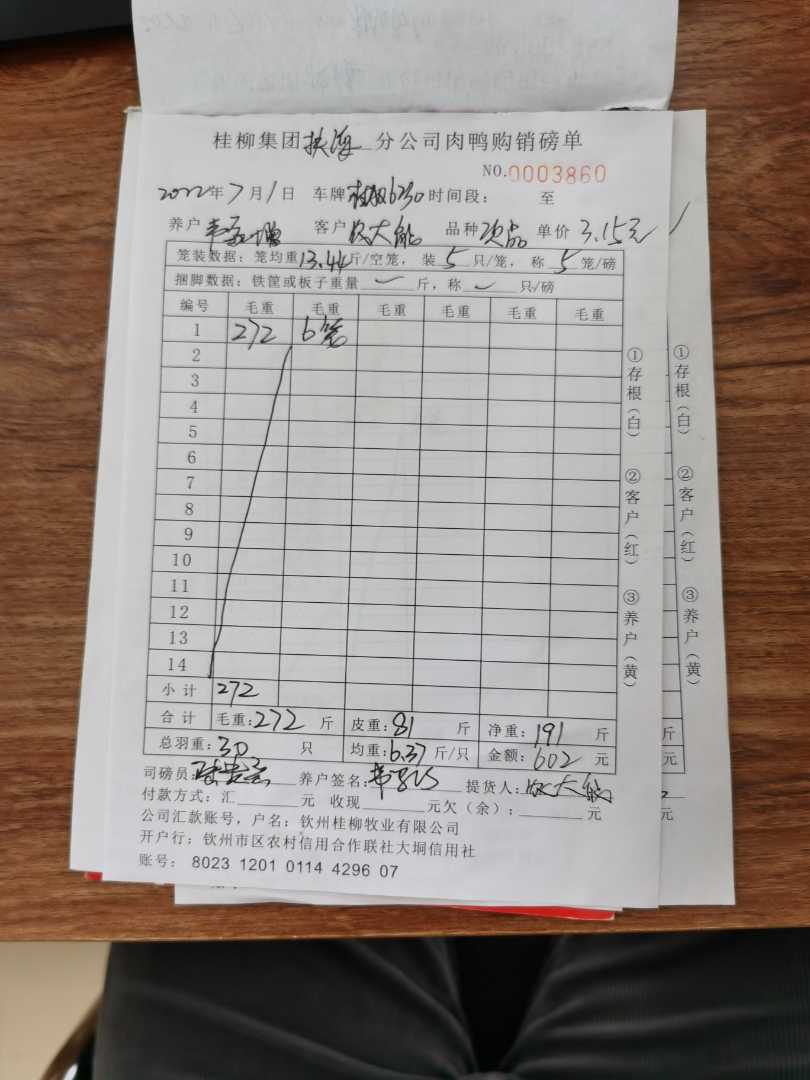 桂柳集团扶海分公司肉鸭购销磅单
NO.0003860
2022年7月1日 车牌6230时间段： 至
养户 客户 大能 品种次品 单价3.15元
笼装数据：笼均重13.44斤/空笼，装5只/笼，称5笼/磅
捆脚数据：铁筐或板子重量 斤，称 只/磅
编号 毛重 毛重 毛重 毛重 毛重 毛重
1 272 6笼
2
3
4
5
6
7
8
9
10
11
12
13
14
小计 272
合计 毛重：272斤 皮重：81斤 净重：191斤
总羽重：30只 均重：6.37斤/只 金额：602元
司磅员： 养户签名： 提货人： 大能
付款方式：汇 元 收现 元欠（余）： 元
公司汇款账号，户名：钦州桂柳牧业有限公司
开户行：钦州市区农村信用合作联社大垌信用社
账号： 8023 1201 0114 4296 07
①存根（白）
②客户（红）
③养户（黄）
①存根（白）
②客户（红）
③养户（黄）
斤
元
元